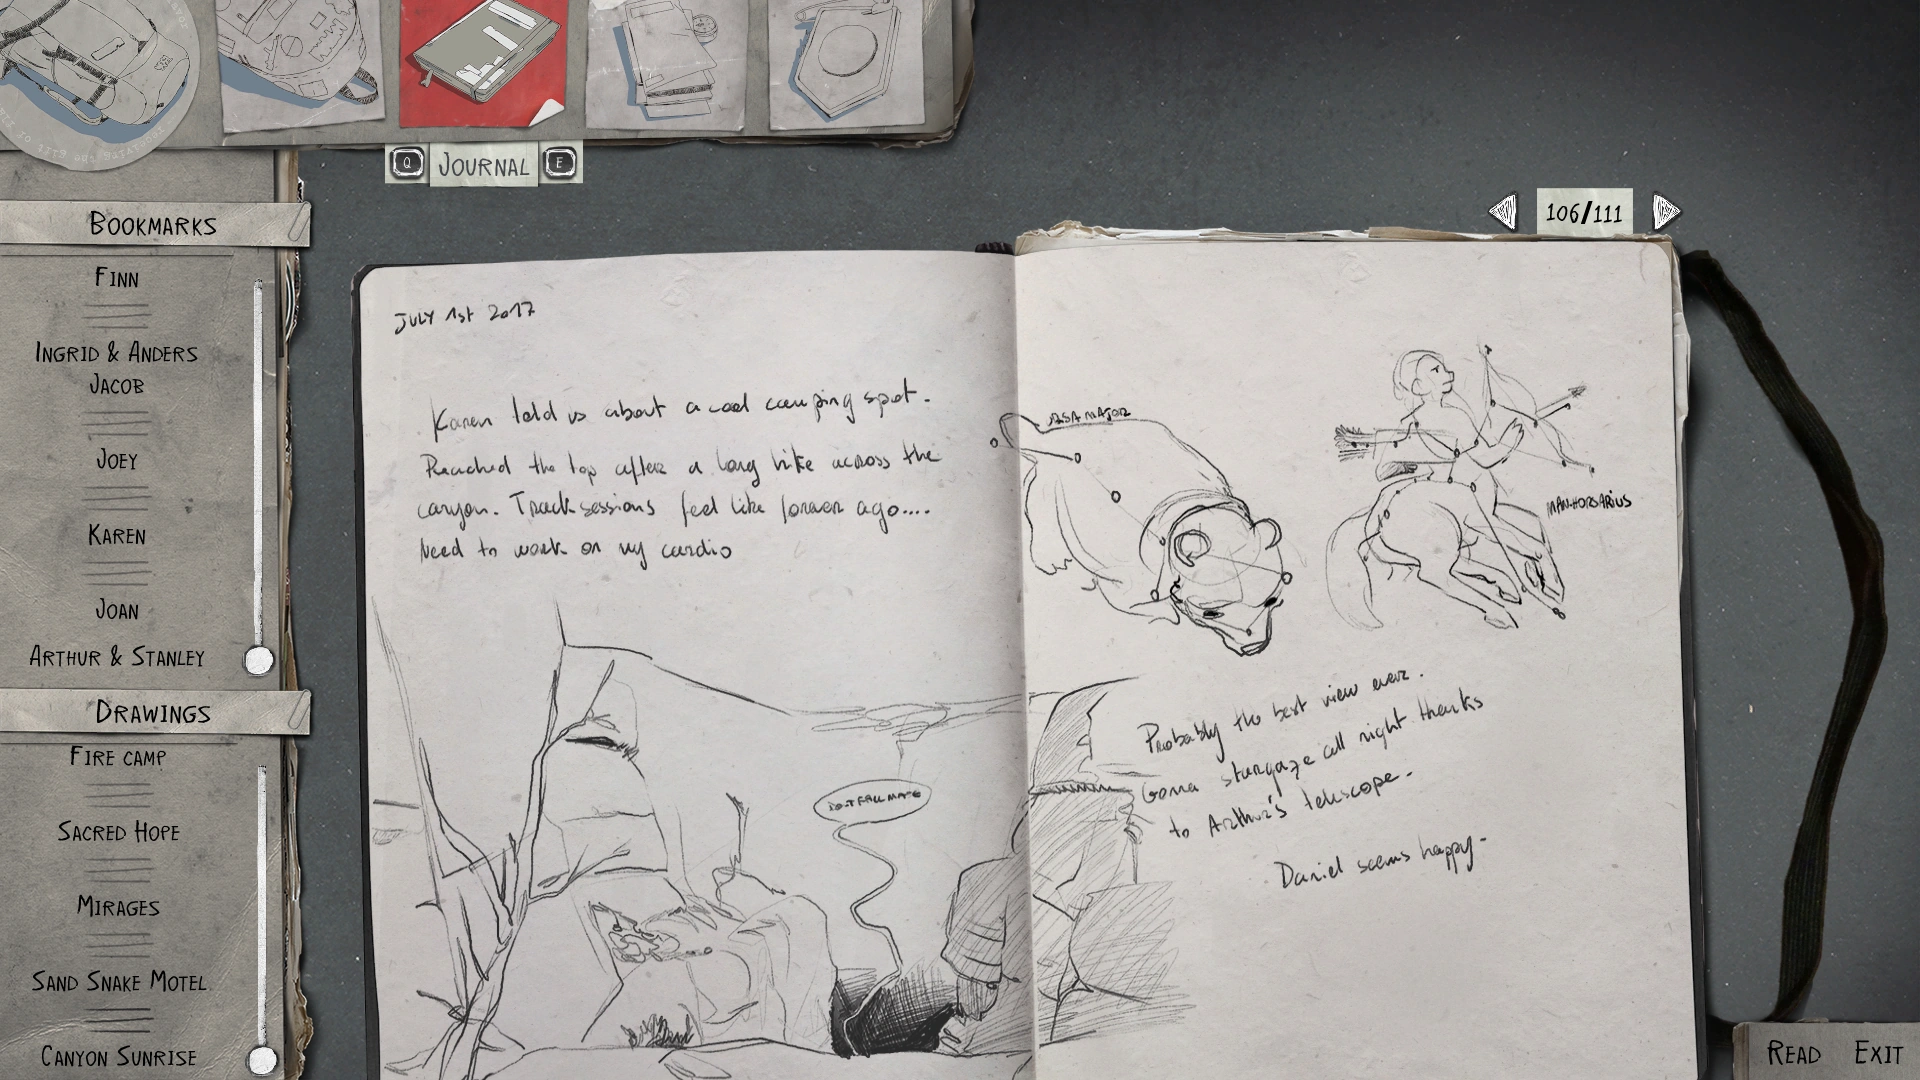 Q JOURNAL E
106/111
BOOKMARKS
FINN
INGRID & ANDERS
JACOB
JOEY
KAREN
JOAN
ARTHUR & STANLEY
DRAWINGS
FIRE CAMP
SACRED HOPE
MIRAGES
SAND SNAKE MOTEL
CANYON SUNRISE
JULY 1st 2017
Karen told us about a cool camping spot.
Reached the top after a long hike across the
canyon. Track sessions feel like forever ago....
Need to work on my cardio
URSA MAJOR
MAN-HORSARIUS
Probably the best view ever.
Gonna stargaze all night thanks
to Arthur's telescope.
Daniel seems happy.
READ EXIT